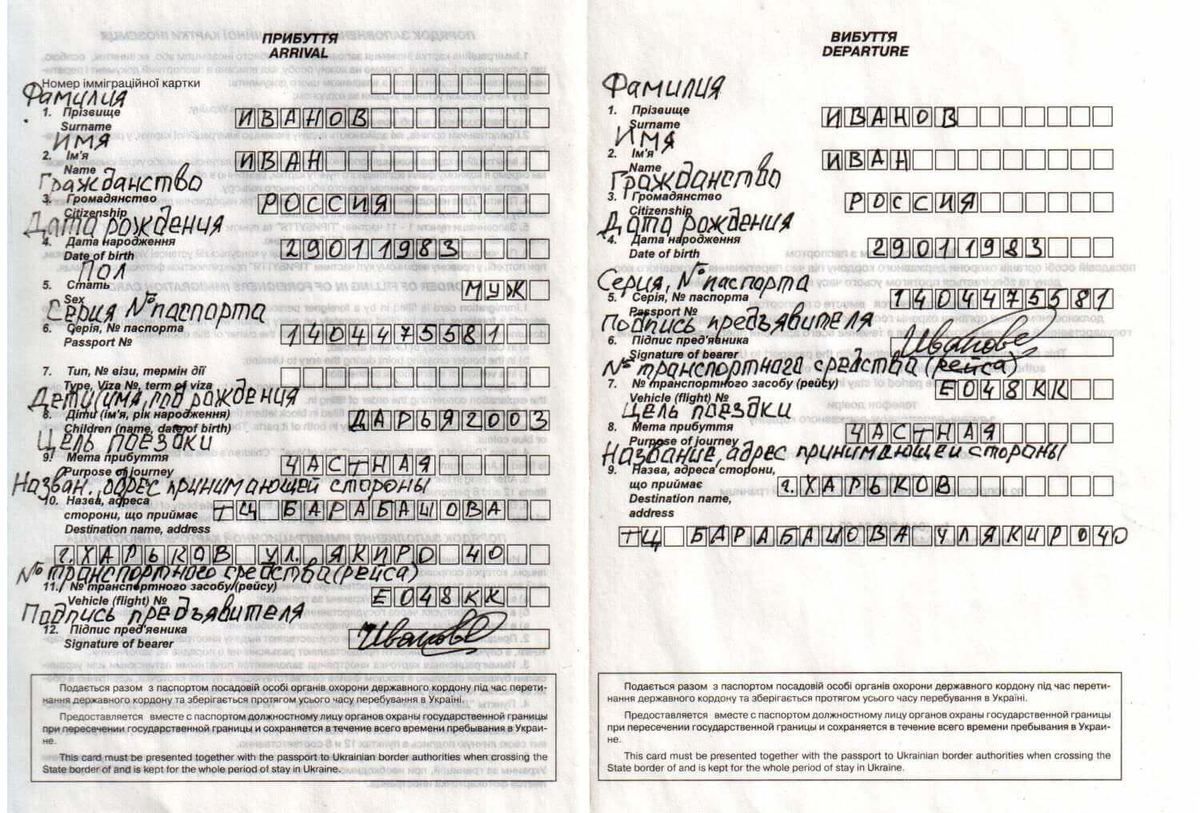 ПРИБУТТЯ
ARRIVAL
Номер імміграційної картки
Фамилия
1. Прізвище
Surname
ИВАНОВ
Имя
2. Ім'я
Name
ИВАН
Гражданство
3. Громадянство
Citizenship
РОССИЯ
Дата рождения
4. Дата народження
Date of birth
29011983
Пол
5. Стать
Sex
МУЖ
Серия №паспорта
6. Серія, № паспорта
Passport №
1404475581
7. Тип, № візи, термін дії
Type, Viza №, term of viza
Дети (имя, год рождения
8. Діти (ім'я, рік народження)
Children (name, date of birth)
ДАРЬЯ2003
Цель поездки
9. Мета прибуття
Purpose of journey
ЧАСТНАЯ
Назван., адрес принимающей стороны
10. Назва, адреса
сторони, що приймає
Destination name, address
ТЦ БАРАБАШОВА
г.ХАРЬКОВ УЛ. ЯКИРО 40
№ транспортного средства (рейса)
11. № транспортного засобу (рейсу)
Vehicle (flight) №
Е048КК
Подпись предъявителя
12. Підпис пред'явника
Signature of bearer
Иванов
Подається разом з паспортом посадовій особі органів охорони державного кордону під час перети-
нання державного кордону та зберігається протягом усього часу перебування в Україні.
Предоставляется вместе с паспортом должностному лицу органов охраны государственной границы
при пересечении государственной границы и сохраняется в течение всего времени пребывания в Украи-
не.
This card must be presented together with the passport to Ukrainian border authorities when crossing the
State border of and is kept for the whole period of stay in Ukraine.
ВИБУТТЯ
DEPARTURE
Фамилия
1. Прізвище
Surname
ИВАНОВ
Имя
2. Ім'я
Name
ИВАН
Гражданство
3. Громадянство
Citizenship
РОССИЯ
Дата рождения
4. Дата народження
Date of birth
29011983
Серия, № паспорта
5. Серія, № паспорта
Passport №
1404475581
Подпись предъявителя
6. Підпис пред'явника
Signature of bearer
Иванов
№ транспортного средства (рейса)
7. № транспортного засобу (рейсу)
Vehicle (flight) №
Е048КК
Цель поездки
8. Мета прибуття
Purpose of journey
ЧАСТНАЯ
Название, адрес принимающей стороны
9. Назва, адреса сторони,
що приймає
Destination name,
address
г.ХАРЬКОВ
ТЦ БАРАБАШОВА УЛЯКИРО40
Подається разом з паспортом посадовій особі органів охорони державного кордону під час перети-
нання державного кордону та зберігається протягом усього часу перебування в Україні.
Предоставляется вместе с паспортом должностному лицу органов охраны государственной границы
при пересечении государственной границы и сохраняется в течение всего времени пребывания в Украи-
не.
This card must be presented together with the passport to Ukrainian border authorities when crossing the
State border of and is kept for the whole period of stay in Ukraine.